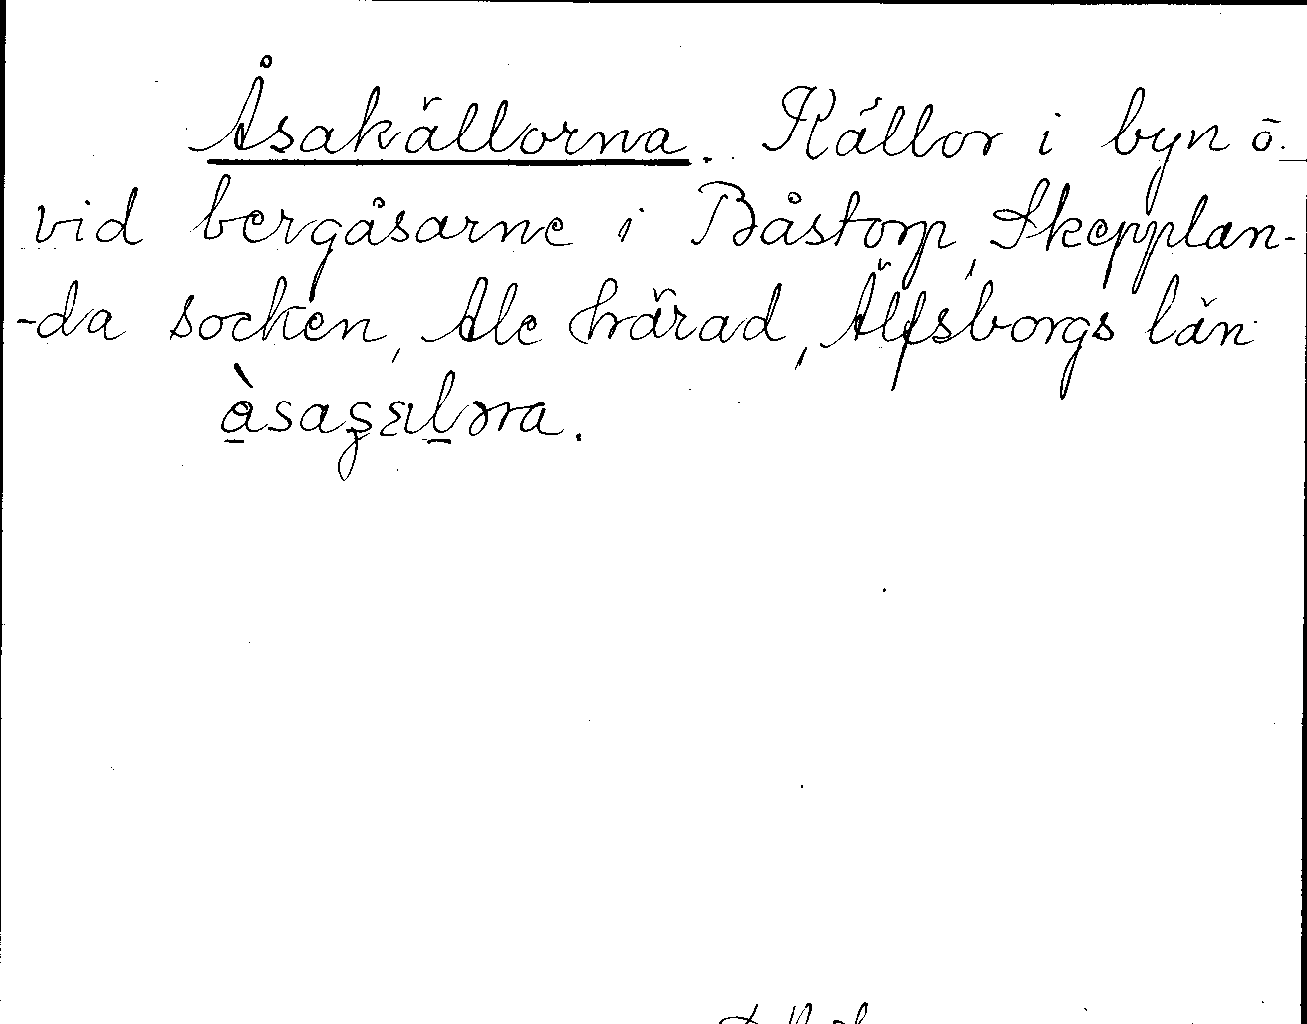 Åsakällorna. Källor i byn ö.
vid bergåsarne i Båstorp, Skepplan-
-da socken, Ale härad, Älfsborgs län